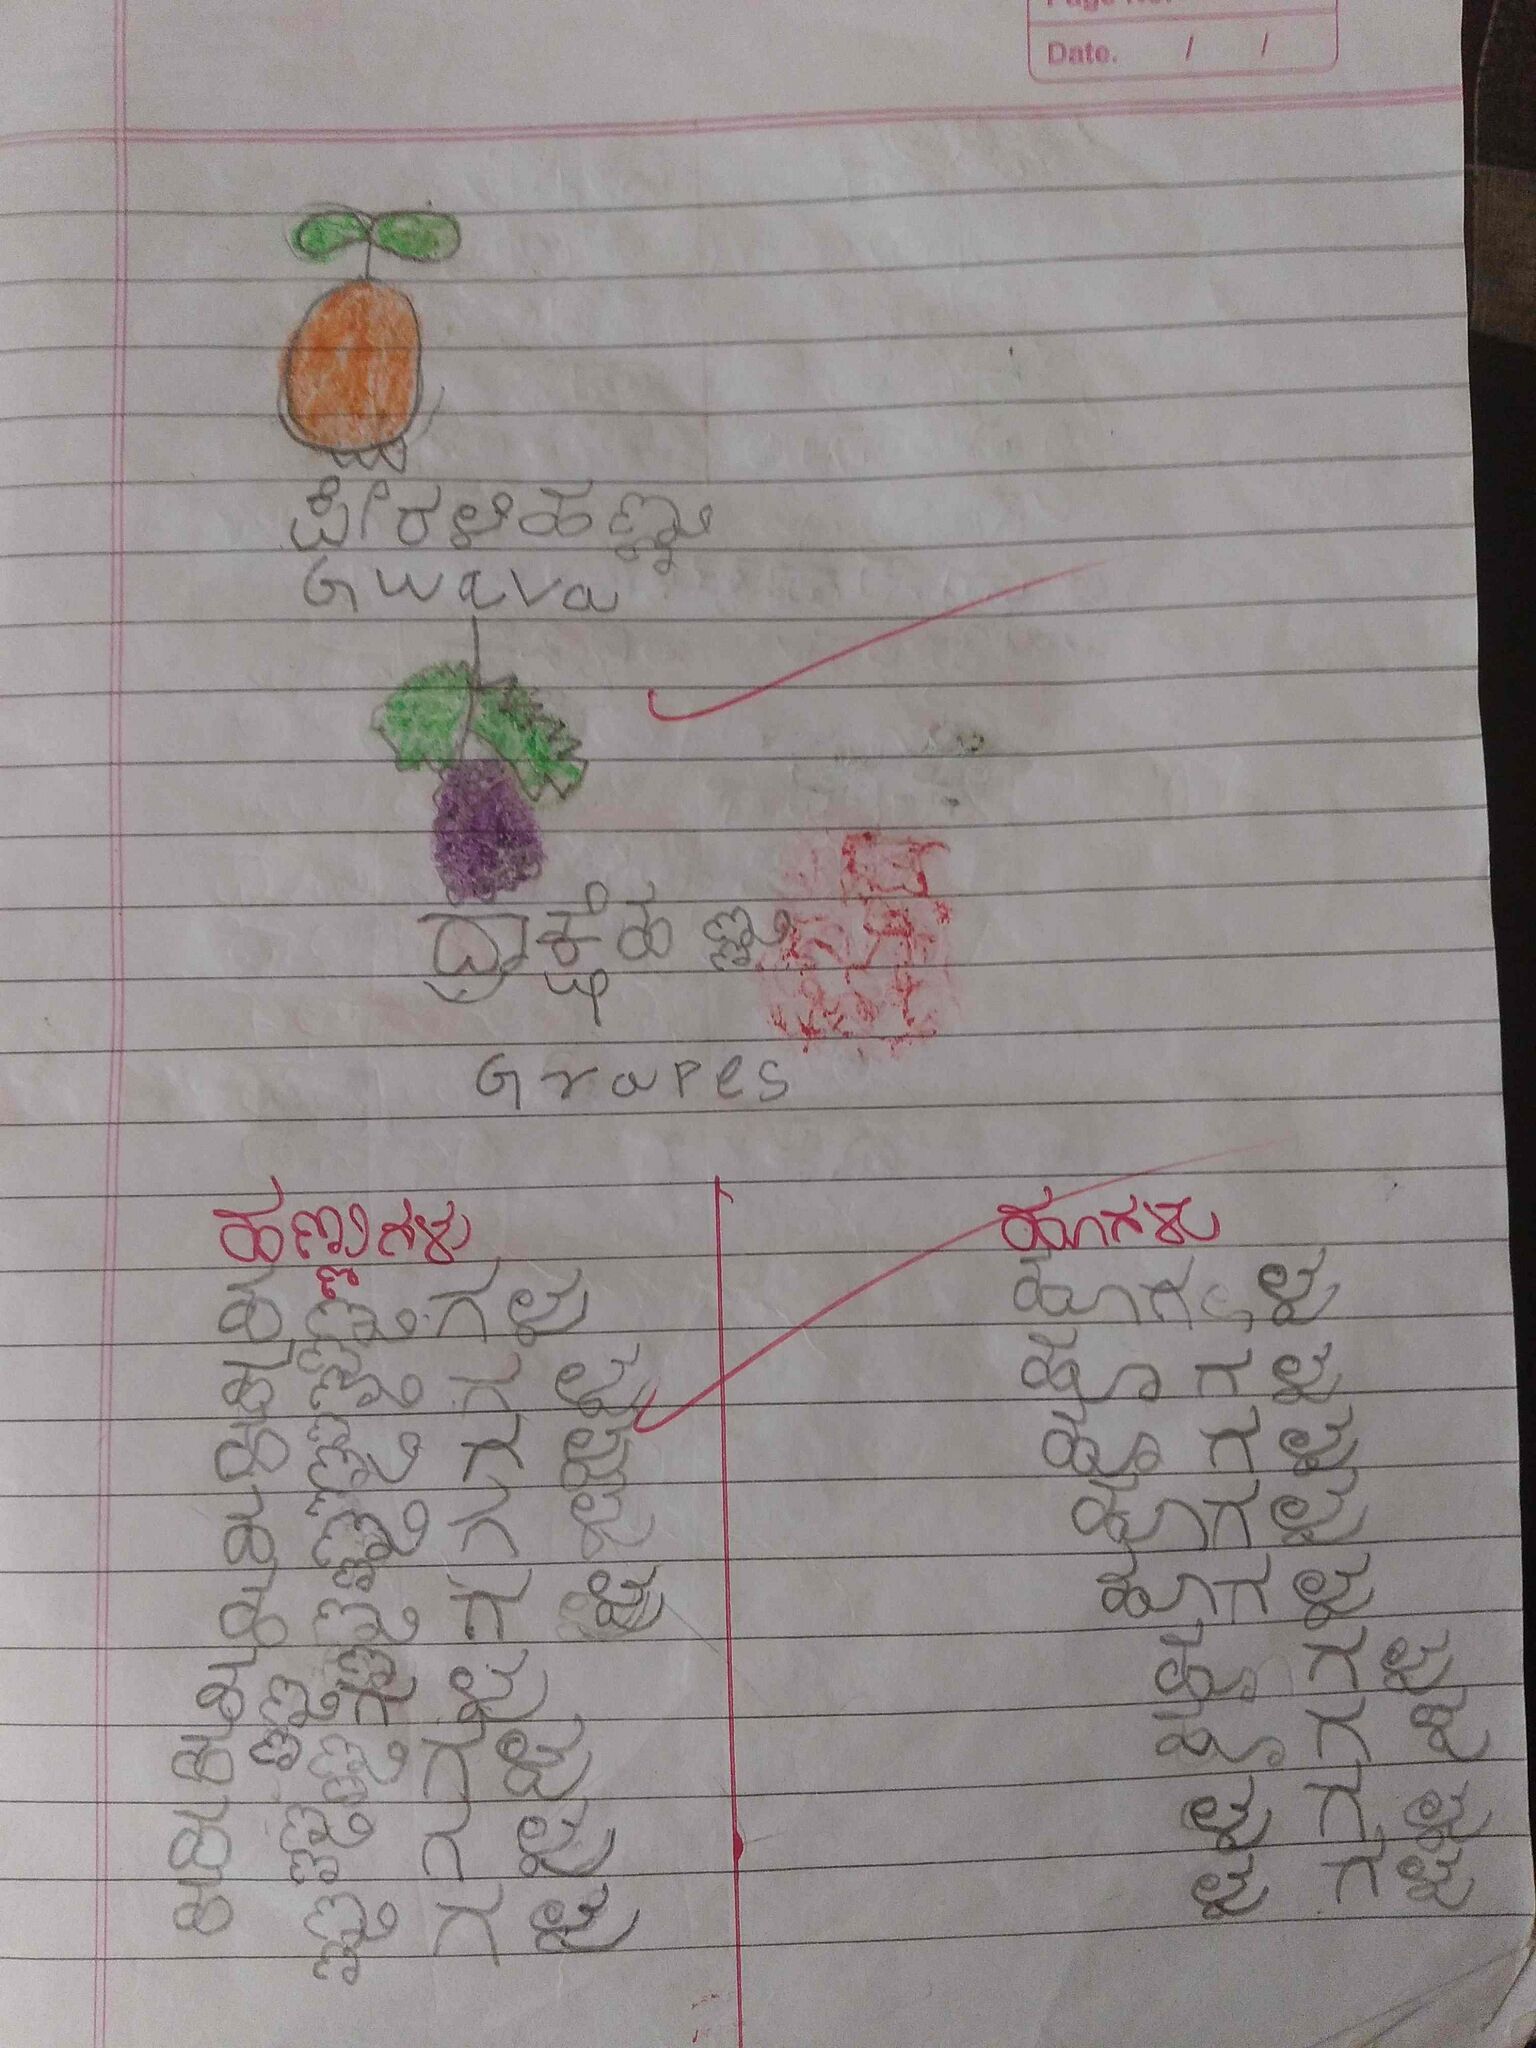 Page No.
Date. / /
ಪೀಕಳಹಣ್ಣು
Gwava
ದ್ರಾಕ್ಷೆಹಣ್ಣು
Grapes
ಹಣ್ಣುಗಳು ಹೂಗಳು
ಹಣ್ಣುಗಳು ಹೂಗಳು
ಹಣ್ಣುಗಳು ಹೂಗಳು
ಹಣ್ಣುಗಳು ಹೂಗಳು
ಹಣ್ಣುಗಳು ಹೂಗಳು
ಹಣ್ಣುಗಳು ಹೂಗಳು
ಹಣ್ಣುಗಳು ಹೂಗಳು
ಹಣ್ಣುಗಳು ಹೂಗಳು
ಹಣ್ಣುಗಳು ಳುಗಳು
ಹಣ್ಣುಗಳು ಳುಗಳು